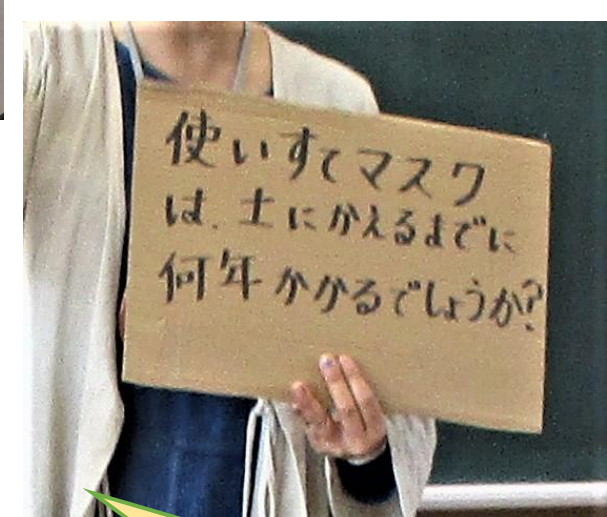 使いすてマスク
は、土にかえるまでに
何年かかるでしょうか?